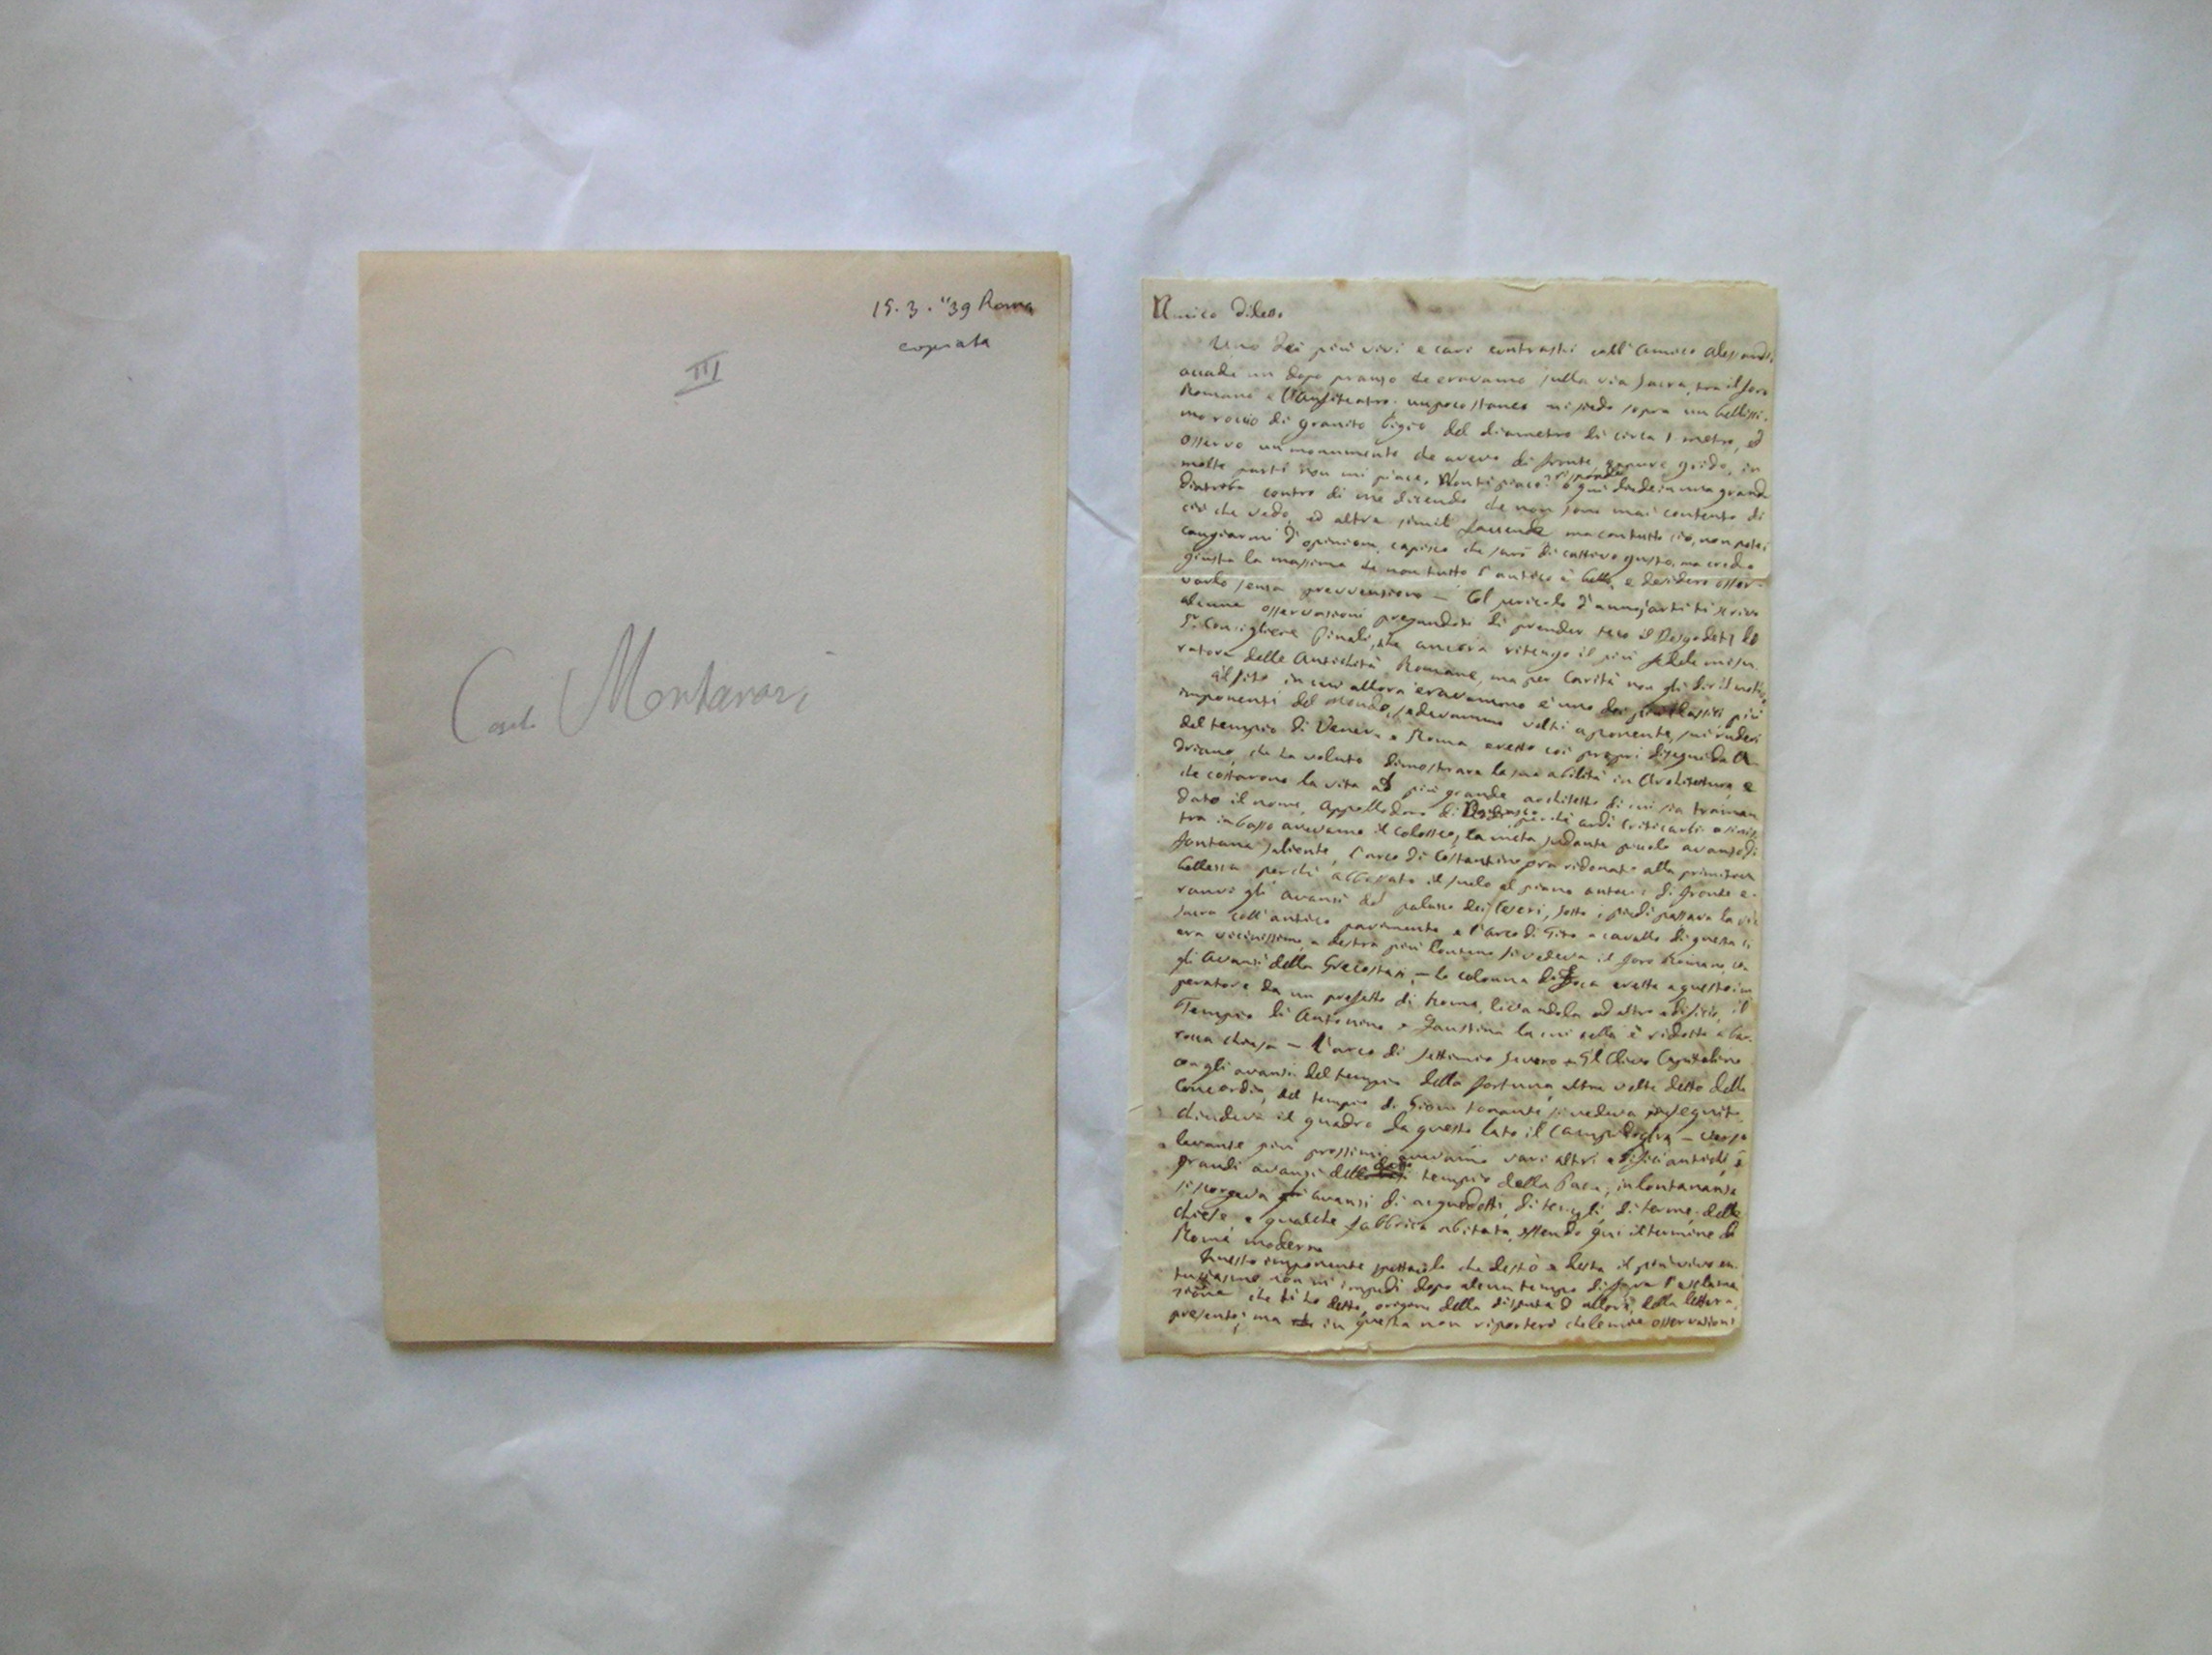 15. 3. "39 Roma
copiata
III
Carlo Montanari
Amico diletto
Uno dei più vivi e cari contrasti coll'amico Alessandri
accade un dopo pranzo che eravamo sulla via Sacra, tra il foro
Romano e l'Anfiteatro. un poco stanco mi siedo sopra un bellissi-
mo roccio di granito bigio del diametro di circa 1 metro, ed
osservo un monumento che avevo di fronte, eppure grido, in
molte parti non mi piace. Non ti piace? risponde
e qui diede in una grande
diatriba contro di me dicendo che non sono mai contento di
ciò che vedo, ed altre simili faccende ma con tutto ciò, non potei
cangiarmi d'opinione, capisco che sarò di cattivo gusto, ma credo
giusta la massima che non tutto l'antico è bello, e desidero osser-
varlo senza prevenzione — Col pericolo d'annojarti ti scrivo
alcune osservazioni pregandoti di prender teco il Desgodetz
Sr. Consigliere Pinali, che ancora ritengo il più fedele misu-
ratore delle Antichità Romane, ma per Carità non gli dir il motivo
Il sito in cui allora eravamo è uno dei più classici più
imponenti del mondo, sedevamo volti a ponente, sui ruderi
del tempio di Venere e Roma eretto coi proprj disegni da A-
driano, che ha voluto dimostrare la sua abilità in Architettura e
che costarono la vita al più grande architetto di cui sia traman-
dato il nome, Appollodoro di Damasco perchè ardì criticarli a sinis-
tra in basso avevamo il Colosseo, la meta sudante piccolo avanzo di
fontana saliente, l'arco di Costantino ora ridonato alla primitiva
bellezza perchè abbassato il suolo al piano antico: di fronte e-
ranvi gli avanzi del palazzo dei Ceseri, sotto i piedi passava la via
sacra coll'antico pavimento e l'arco di Tito a cavallo di questa ci
era vicinissimo, a destra più lontano si vedeva il foro Romano, con
gli Avanzi della Grecostasi, — la colonna di Foca eretta a questo im
peratore da un prefetto di Roma, levandola ad altro edificio, il
Tempio di Antonino e Faustina la cui cella è ridotta a bar-
rocca chiesa — l'arco di Settimio Severo — Il Clivo Capitolino
con gli avanzi del tempio della fortuna, altre volte detto della
Concordia, del tempio di Giove tonante si vedeva in seguito,
chiudeva il quadro da questo lato il Campidoglio — verso
levante più prossimi avevamo vari altri edifici antichi, i
grandi avanzi del detto tempio della Pace, in lontananza
si scorgeva gli avanzi di acquedotti, di tempj, di terme, delle
chiese, e qualche fabbrica abitata, essendo qui il termine di
Roma moderna
Questo imponente spettacolo che destò e desta il più vivo en-
tusiasmo non m'impedì dopo alcun tempo di fare l'esclama
zione che ti ho detto, origine della disputa d'allora, della lettera
presente, ma in questa non riporterò che le mie osservazioni